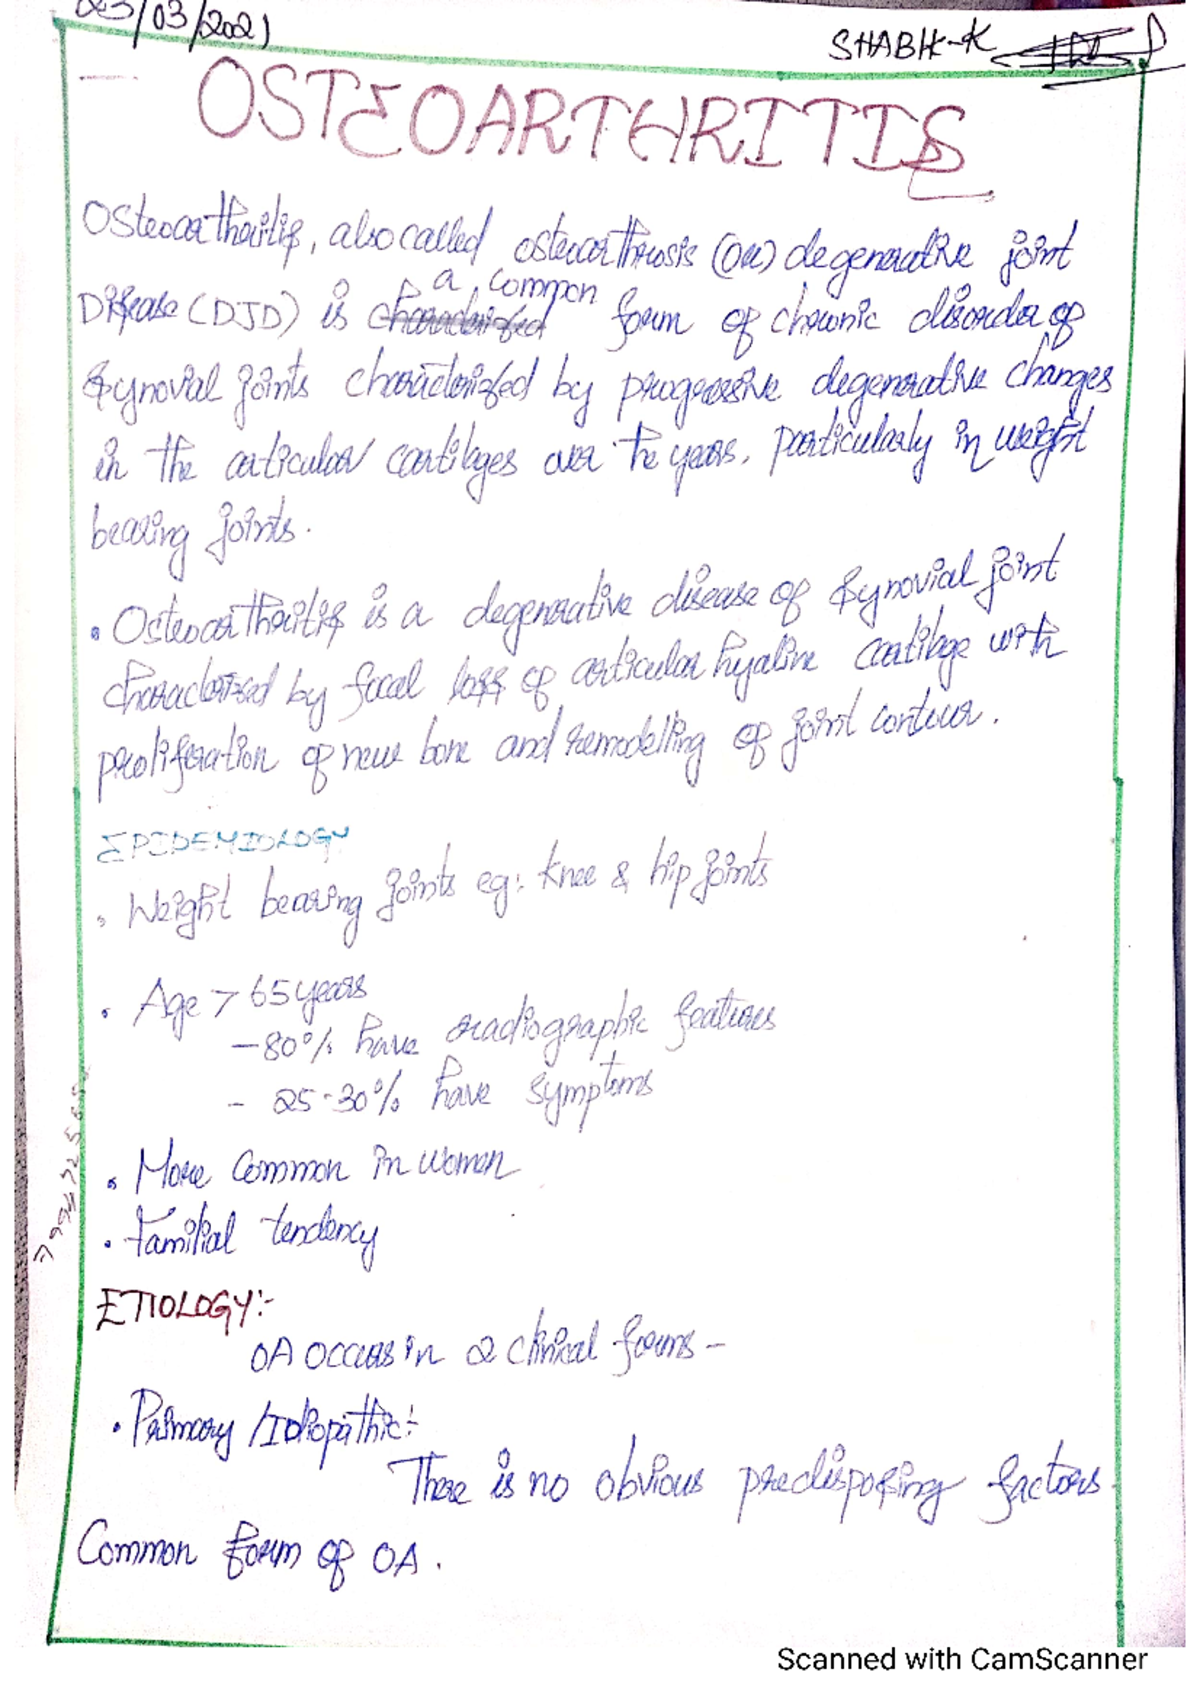 /03/2021
SHABH-K
OSTEOARTHRITIS
Osteoarthritis, also called osteoarthrosis (OR) degenerative joint
Disease (DJD) is a common form of chronic disorder of
synovial joints characterized by progressive degenerative changes
in the articular cartilages over the years, particularly in weight
bearing joints.
• Osteoarthritis is a degenerative disease of synovial joint
characterized by focal loss of articular hyaline cartilage with
proliferation of new bone and remodelling of joint contour.
EPIDEMIOLOGY
• Weight bearing joints eg: knee & hip joints
• Age > 65 years
- 80% have radiographic features
- 25-30% have symptoms
• More common in women
• Familial tendency
ETIOLOGY:-
OA occurs in 2 clinical forms -
• Primary / Idiopathic:-
There is no obvious predisposing factors.
Common form of OA.
Scanned with CamScanner